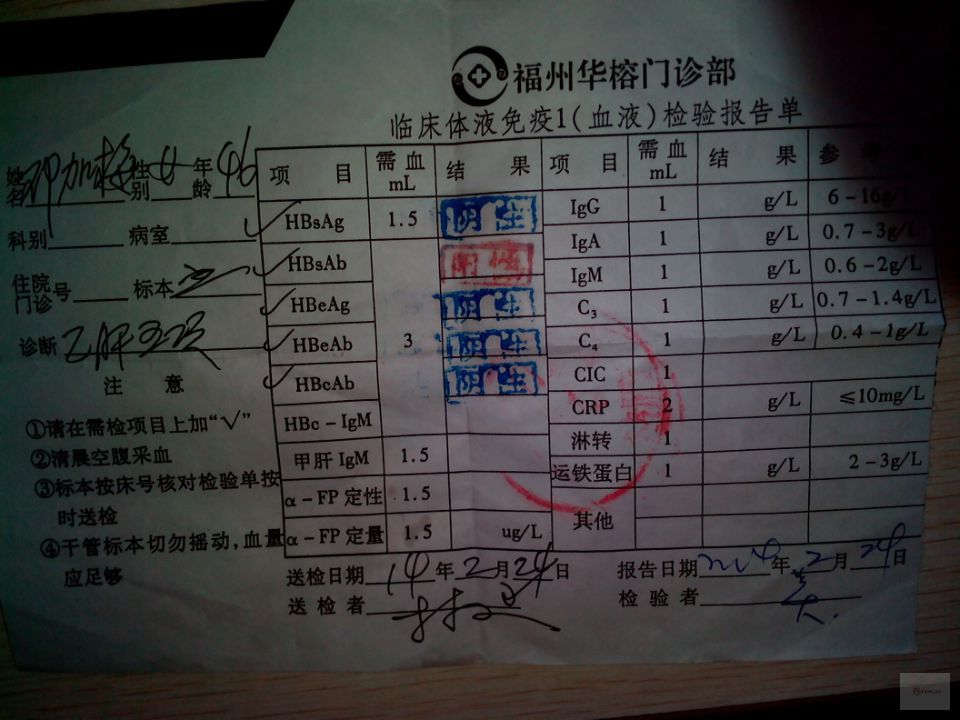 福州华榕门诊部
临床体液免疫1(血液)检验报告单
姓名 性别 女 年龄 46
科别 病室
住院门诊号 标本
诊断 乙肝五项
注 意
①请在需检项目上加“√”
②清晨空腹采血
③标本按床号核对检验单按
时送检
④干管标本切勿摇动,血量
应足够
项 目 需血mL 结 果 项 目 需血mL 结 果 参
√ HBsAg 1.5 阴性 IgG 1 g/L 6-16g/L
√ HBsAb 阳性 IgA 1 g/L 0.7-3g/L
IgM 1 g/L 0.6-2g/L
√ HBeAg 阴性 C3 1 g/L 0.7-1.4g/L
√ HBeAb 3 阴性 C4 1 g/L 0.4-1g/L
√ HBcAb 阴性 CIC 1
HBc-IgM CRP 2 g/L ≤10mg/L
淋转 1
甲肝IgM 1.5 运铁蛋白 1 g/L 2-3g/L
α-FP定性 1.5 其他
α-FP定量 1.5 ug/L
送检日期 14 年 2 月 24 日 报告日期 2014 年 2 月 24 日
送检者 检验者